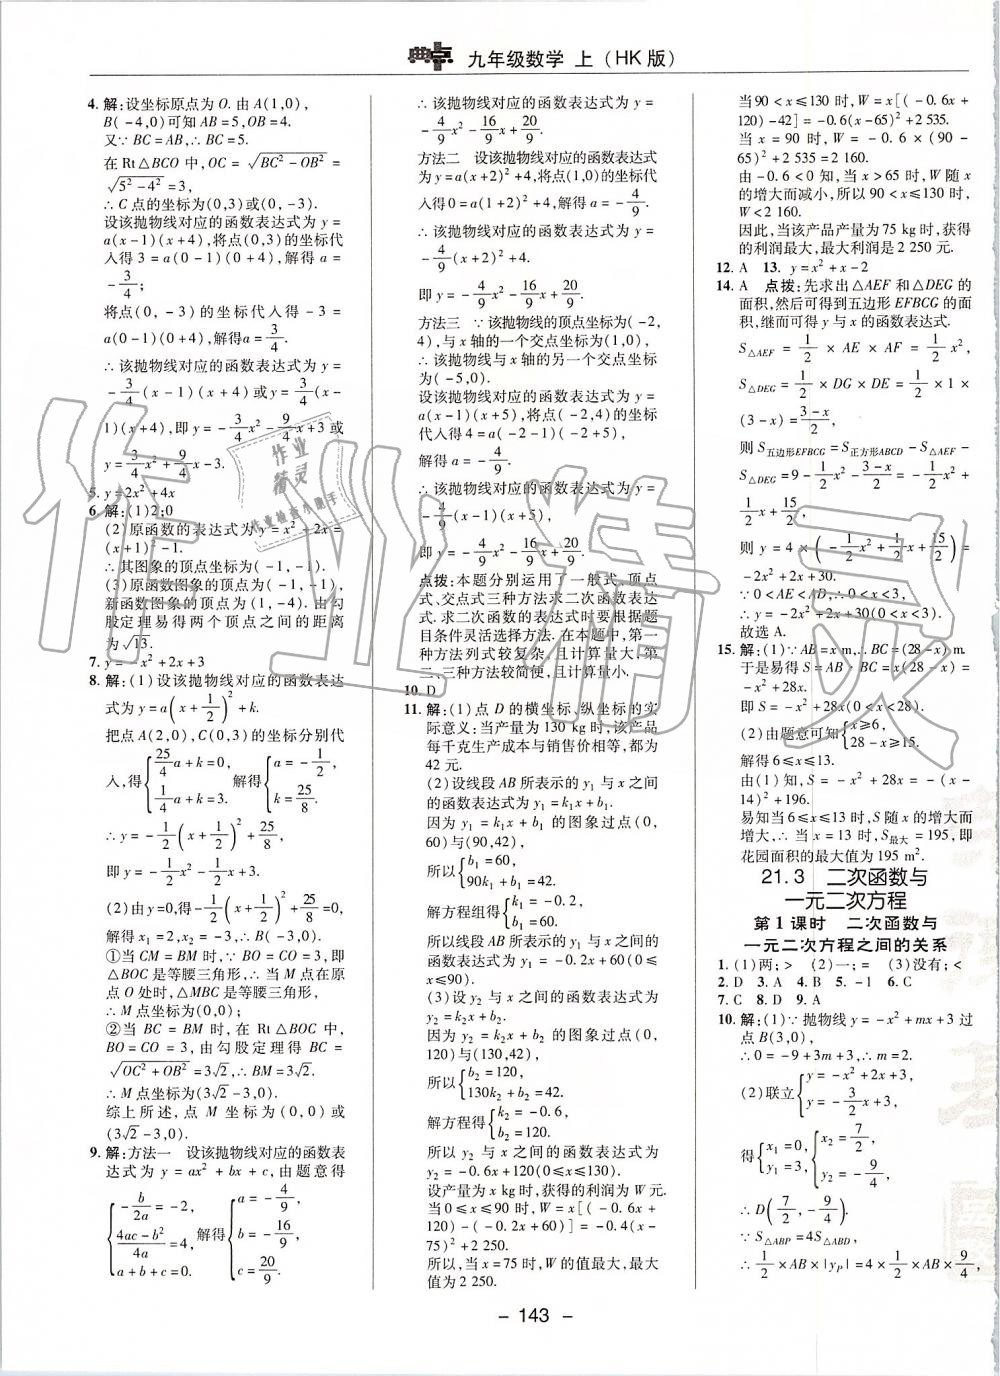 典点 九年级数学 上(HK版)
4. 解:设坐标原点为O. 由A(1,0),
B(-4,0)可知AB=5,OB=4.
又∵BC=AB,∴BC=5.
在Rt△BCO中,OC=√(BC²-OB²)
=√(5²-4²)=3,
∴C点的坐标为(0,3)或(0,-3).
设该抛物线对应的函数表达式为y=
a(x-1)(x+4),将点(0,3)的坐标代
入得3=a(0-1)(0+4),解得a=
-3/4;
将点(0,-3)的坐标代入得-3=
a(0-1)(0+4),解得a=3/4.
∴该抛物线对应的函数表达式为y=
-3/4(x-1)(x+4)或y=3/4(x-
1)(x+4),即y=-3/4x²-9/4x+3或
y=3/4x²+9/4x-3.
5. y=2x²+4x
6. 解:(1)2;0
(2)原函数的表达式为y=x²+2x=
(x+1)²-1.
∴其图象的顶点为(-1,-1).
(3)原函数图象的顶点为(-1,-1),
新函数图象的顶点为(1,-4). 由勾
股定理易得两个顶点之间的距离
为√13.
7. y=-x²+2x+3
8. 解:(1)设该抛物线对应的函数表达
式为y=a(x+1/2)²+k.
把点A(2,0),C(0,3)的坐标分别代
入,得{25/4a+k=0, 1/4a+k=3. 解得{a=-1/2, k=25/8.
∴y=-1/2(x+1/2)²+25/8,
即y=-1/2x²-1/2x+3.
(2)由y=0,得-1/2(x+1/2)²+25/8=0.
解得x₁=2,x₂=-3,∴B(-3,0).
①当CM=BM时,∵BO=CO=3,即
△BOC是等腰三角形,∴当M点在原
点O处时,△MBC是等腰三角形,
∴M点坐标为(0,0);
②当BC=BM时,在Rt△BOC中,
BO=CO=3,由勾股定理得BC=
√(OC²+OB²)=3√2,∴BM=3√2.
∴M点坐标为(3√2-3,0).
综上所述,点M坐标为(0,0)或
(3√2-3,0).
9. 解:方法一 设该抛物线对应的函数表
达式为y=ax²+bx+c,由题意得
{-b/2a=-2, (4ac-b²)/4a=4, a+b+c=0. 解得{a=-4/9, b=-16/9, c=20/9.
∴该抛物线对应的函数表达式为y=
-4/9x²-16/9x+20/9.
方法二 设该抛物线对应的函数表达式
为y=a(x+2)²+4,将点(1,0)的坐标代
入得0=a(1+2)²+4,解得a=-4/9.
∴该抛物线对应的函数表达式为y=
-4/9(x+2)²+4,
即y=-4/9x²-16/9x+20/9.
方法三 ∵该抛物线的顶点坐标为(-2,
4),与x轴的一个交点坐标为(1,0),
∴该抛物线与x轴的另一个交点坐标
为(-5,0).
设该抛物线对应的函数表达式为y=
a(x-1)(x+5),将点(-2,4)的坐标
代入得4=a(-2-1)(-2+5),
解得a=-4/9.
∴该抛物线对应的函数表达式为y=
-4/9(x-1)(x+5),
即y=-4/9x²-16/9x+20/9.
点拨:本题分别运用了一般式、顶点
式、交点式三种方法求二次函数表达
式. 求二次函数的表达式时要根据题
目条件灵活选择方法. 在本题中,第一
种方法列式较复杂,且计算量大,第
二、三种方法较简便,且计算量小.
10. D
11. 解:(1)点D的横坐标、纵坐标的实
际意义:当产量为130 kg时,该产品
每千克生产成本与销售价相等,都为
42元.
(2)设线段AB所表示的y₁与x之间
的函数表达式为y₁=k₁x+b₁.
因为y₁=k₁x+b₁的图象过点(0,
60)与(90,42),
所以{b₁=60, 90k₁+b₁=42.
解方程组得{k₁=-0.2, b₁=60.
所以线段AB所表示的y₁与x之间的
函数表达式为y₁=-0.2x+60(0≤
x≤90).
(3)设y₂与x之间的函数表达式为
y₂=k₂x+b₂.
因为y₂=k₂x+b₂的图象过点(0,
120)与(130,42),
所以{b₂=120, 130k₂+b₂=42.
解方程得{k₂=-0.6, b₂=120.
所以y₂与x之间的函数表达式为
y₂=-0.6x+120(0≤x≤130).
设产量为x kg时,获得的利润为W元.
当0≤x≤90时,W=x[(-0.6x+
120)-(-0.2x+60)]=-0.4(x-
75)²+2 250.
所以,当x=75时,W的值最大,最大
值为2 250.
当90<x≤130时,W=x[(-0.6x+
120)-42]=-0.6(x-65)²+2 535.
当x=90时,W=-0.6×(90-
65)²+2 535=2 160.
由-0.6<0知,当x>65时,W随x
的增大而减小,所以90<x≤130时,
W<2 160.
因此,当该产品产量为75 kg时,获得
的利润最大,最大利润是2 250元.
12. A 13. y=x²+x-2
14. A 点拨:先求出△AEF和△DEG的
面积,然后可得到五边形EFBCG的面
积,继而可得y与x的函数表达式.
S△AEF=1/2×AE×AF=1/2x²,
S△DEG=1/2×DG×DE=1/2×1×
(3-x)=(3-x)/2,
则S五边形EFBCG=S正方形ABCD-S△AEF-
S△DEG=9-1/2x²-(3-x)/2=-1/2x²+
1/2x+15/2,
则y=4×(-1/2x²+1/2x+15/2)=
-2x²+2x+30.
∵0<AE<AD,∴0<x<3,
∴y=-2x²+2x+30(0<x<3).
故选A.
15. 解:(1)∵AB=x m,∴BC=(28-x) m.
于是易得S=AB·BC=x(28-x)=
-x²+28x.
即S=-x²+28x(0<x<28).
(2)由题意可知{x≥6, 28-x≥15.
解得6≤x≤13.
由(1)知,S=-x²+28x=-(x-
14)²+196.
易知当6≤x≤13时,S随x的增大而
增大,∴当x=13时,S最大=195,即
花园面积的最大值为195 m².
21.3 二次函数与
一元二次方程
第1课时 二次函数与
一元二次方程之间的关系
1. (1)两;> (2)一;= (3)没有;<
2. D 3. A 4. B 5. -1 6. C
7. C 8. D 9. A
10. 解:(1)∵抛物线y=-x²+mx+3过
点B(3,0),
∴0=-9+3m+3,∴m=2.
(2)联立{y=-x²+2x+3, y=-3/2x+3,
得{x₁=0, y₁=3, {x₂=7/2, y₂=-9/4,
∴D(7/2,-9/4).
∵S△ABP=4S△ABD,
∴1/2×AB×|yP|=4×1/2×AB×9/4,
- 143 -
作业精灵
作业
精灵
作业检查小助手